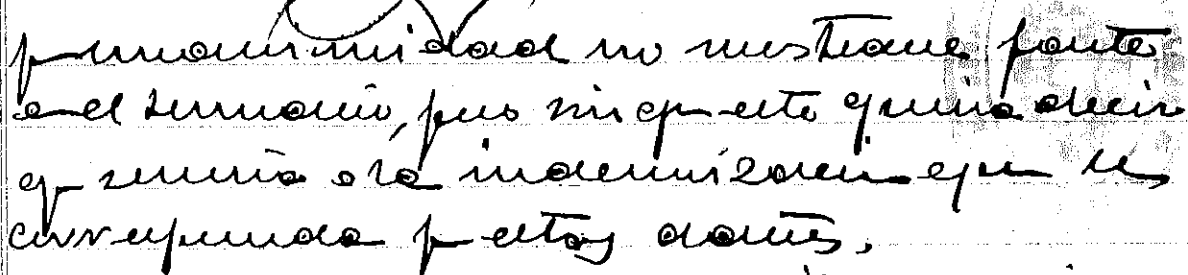 p unanimidad no mostrarse parte
en el sumario, pero sin q esto quiera decir
q renuncia a la indemnización que les
corresponda p estos daños.